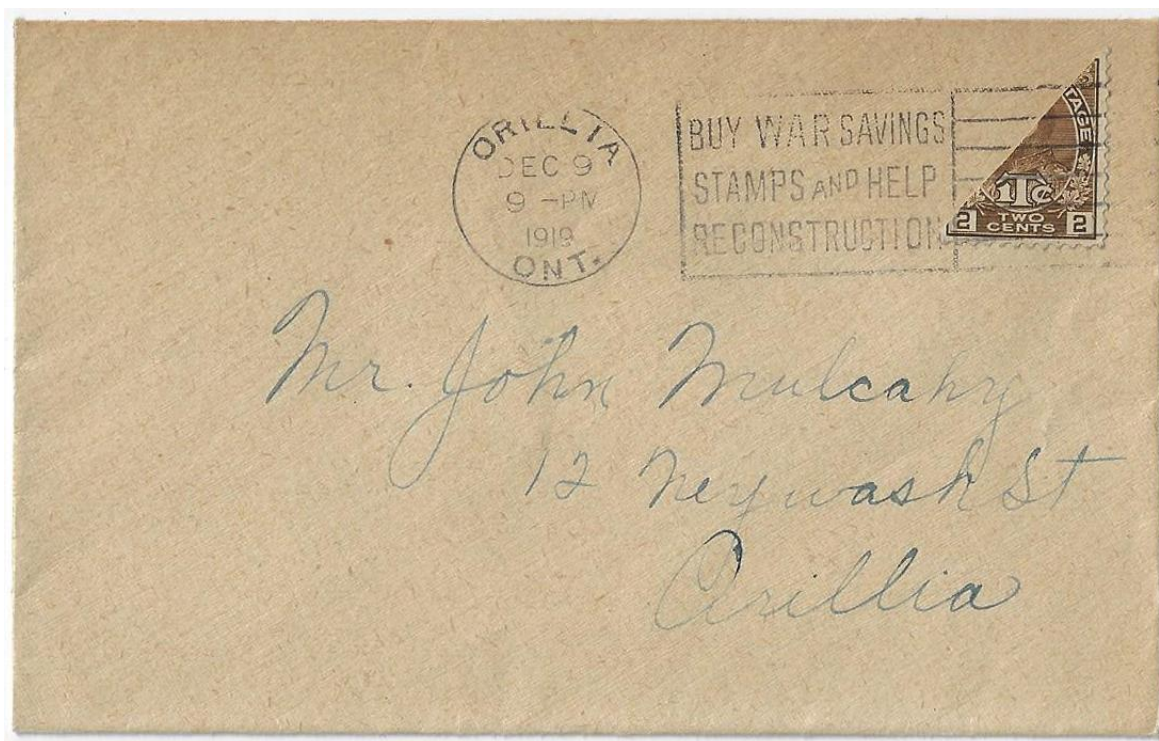 ORILLIA
DEC 9
9 -PM
1919
ONT.
BUY WAR SAVINGS
STAMPS AND HELP
RECONSTRUCTION
TAGE
1T¢
2 TWO CENTS 2
Mr. John Mulcahy
12 Neywash St
Orillia